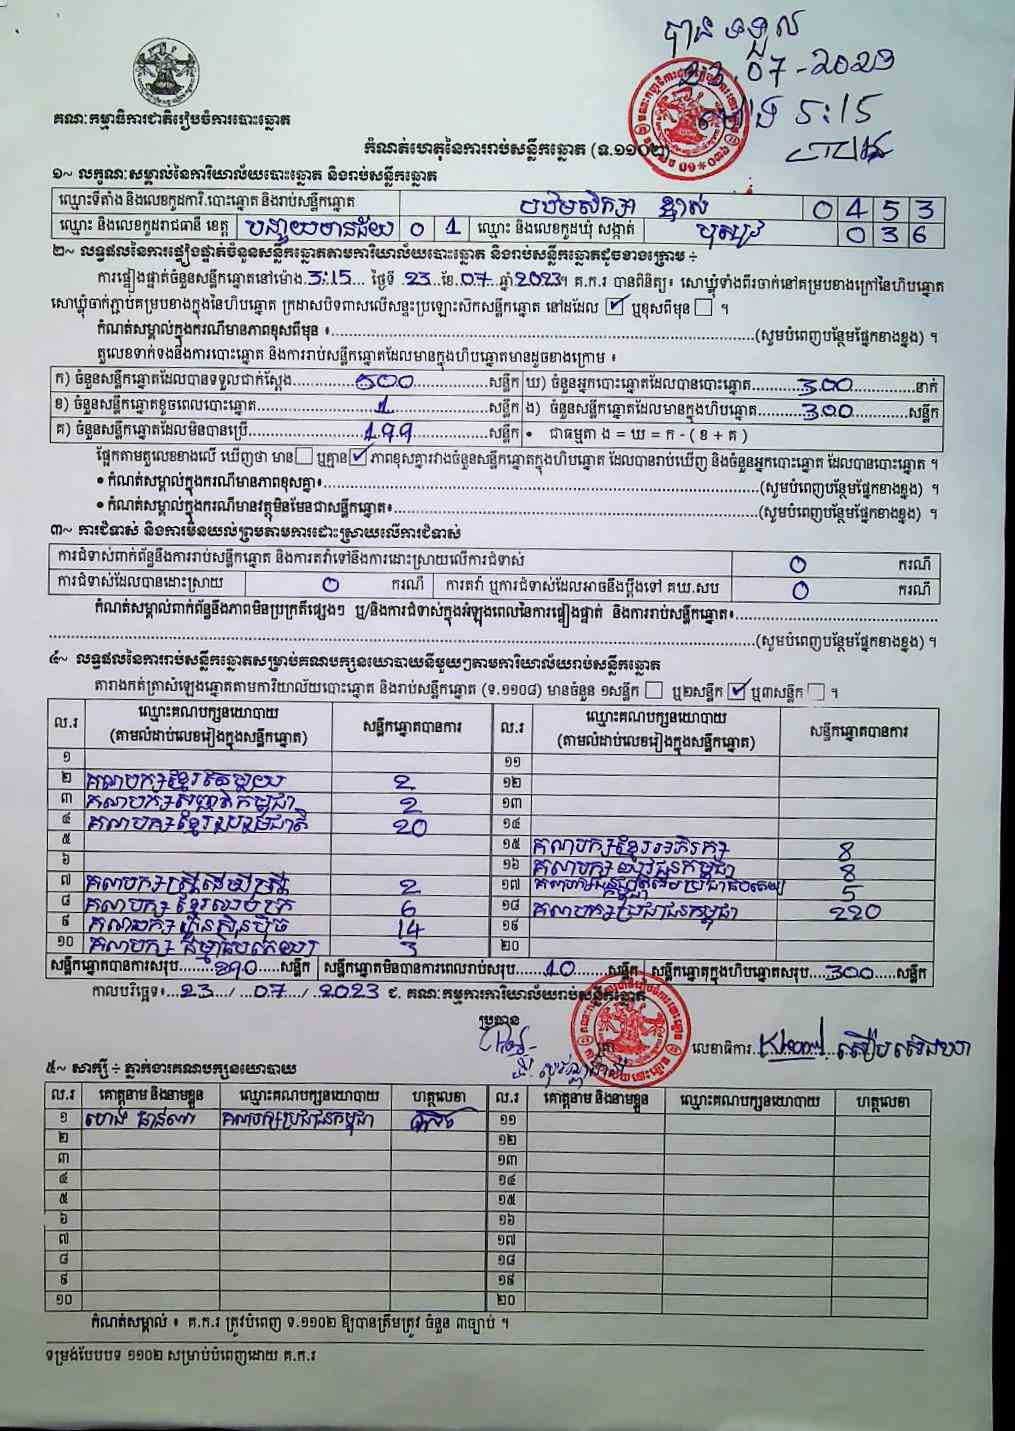 បានទទួល
23.07-2023
ម៉ោង 5:15
គណៈកម្មាធិការជាតិរៀបចំការបោះឆ្នោត
កំណត់ហេតុនៃការរាប់សន្លឹកឆ្នោត (ទ.១១០២)
១~ លក្ខណៈសម្គាល់នៃការិយាល័យបោះឆ្នោត និងរាប់សន្លឹកឆ្នោត
ឈ្មោះទីតាំង និងលេខកូដការិ.បោះឆ្នោត និងរាប់សន្លឹកឆ្នោត បឋមសិក្សា ខ្នាស់ 0 4 5 3
ឈ្មោះ និងលេខកូដរាជធានី ខេត្ត បន្ទាយមានជ័យ 0 1 ឈ្មោះ និងលេខកូដឃុំ សង្កាត់ 0 3 6
២~ លទ្ធផលនៃការផ្ទៀងផ្ទាត់ចំនួនសន្លឹកឆ្នោតតាមការិយាល័យបោះឆ្នោត និងរាប់សន្លឹកឆ្នោតដូចខាងក្រោម ÷
ការផ្ទៀងផ្ទាត់ចំនួនសន្លឹកឆ្នោតនៅម៉ោង 3:15 ថ្ងៃទី 23 ខែ 07 ឆ្នាំ 2023។ គ.ក.រ បានពិនិត្យ៖ សោឃ្លុំទាំងពីរចាក់នៅគម្របខាងក្រៅនៃហិបឆ្នោត
សោឃ្លុំចាក់ភ្ជាប់គម្របខាងក្នុងនៃហិបឆ្នោត ក្រដាសបិទពាសលើសន្ទះប្រឡោះស៊កសន្លឹកឆ្នោត នៅដដែល ☑ ឬខុសពីមុន ☐ ។
កំណត់សម្គាល់ក្នុងករណីមានភាពខុសពីមុន ៖ (សូមបំពេញបន្ថែមផ្នែកខាងខ្នង) ។
តួលេខទាក់ទងនឹងការបោះឆ្នោត និងការរាប់សន្លឹកឆ្នោតដែលមានក្នុងហិបឆ្នោតមានដូចខាងក្រោម ៖
ក) ចំនួនសន្លឹកឆ្នោតដែលបានទទួលជាក់ស្តែង 500 សន្លឹក ឃ) ចំនួនអ្នកបោះឆ្នោតដែលបានបោះឆ្នោត 300 នាក់
ខ) ចំនួនសន្លឹកឆ្នោតខូចពេលបោះឆ្នោត 1 សន្លឹក ង) ចំនួនសន្លឹកឆ្នោតដែលមានក្នុងហិបឆ្នោត 300 សន្លឹក
គ) ចំនួនសន្លឹកឆ្នោតដែលមិនបានប្រើ 199 សន្លឹក • ជាធម្មតា ង = ឃ = ក - ( ខ + គ )
ផ្អែកតាមតួលេខខាងលើ ឃើញថា មាន ☐ ឬគ្មាន ☑ ភាពខុសគ្នារវាងចំនួនសន្លឹកឆ្នោតក្នុងហិបឆ្នោត ដែលបានរាប់ឃើញ និងចំនួនអ្នកបោះឆ្នោត ដែលបានបោះឆ្នោត ។
• កំណត់សម្គាល់ក្នុងករណីមានភាពខុសគ្នា៖ (សូមបំពេញបន្ថែមផ្នែកខាងខ្នង) ។
• កំណត់សម្គាល់ក្នុងករណីមានវត្ថុមិនមែនជាសន្លឹកឆ្នោត៖ (សូមបំពេញបន្ថែមផ្នែកខាងខ្នង) ។
៣~ ការជំទាស់ និងការមិនយល់ព្រមតាមការដោះស្រាយលើការជំទាស់
ការជំទាស់ពាក់ព័ន្ធនឹងការរាប់សន្លឹកឆ្នោត និងការតវ៉ាទៅនឹងការដោះស្រាយលើការជំទាស់ 0 ករណី
ការជំទាស់ដែលបានដោះស្រាយ 0 ករណី ការតវ៉ា ឬការជំទាស់ដែលអាចនឹងប្តឹងទៅ គឃ.សប 0 ករណី
កំណត់សម្គាល់ពាក់ព័ន្ធនឹងភាពមិនប្រក្រតីផ្សេងៗ ឬ/និងការជំទាស់ក្នុងអំឡុងពេលនៃការផ្ទៀងផ្ទាត់ និងការរាប់សន្លឹកឆ្នោត៖
(សូមបំពេញបន្ថែមផ្នែកខាងខ្នង) ។
៤~ លទ្ធផលនៃការរាប់សន្លឹកឆ្នោតសម្រាប់គណបក្សនយោបាយនីមួយៗតាមការិយាល័យរាប់សន្លឹកឆ្នោត
តារាងកត់ត្រាសំឡេងឆ្នោតតាមការិយាល័យបោះឆ្នោត និងរាប់សន្លឹកឆ្នោត (ទ.១១០៨) មានចំនួន ១សន្លឹក ☐ ឬ២សន្លឹក ☑ ឬ៣សន្លឹក ☐ ។
ល.រ ឈ្មោះគណបក្សនយោបាយ (តាមលំដាប់លេខរៀងក្នុងសន្លឹកឆ្នោត) សន្លឹកឆ្នោតបានការ ល.រ ឈ្មោះគណបក្សនយោបាយ (តាមលំដាប់លេខរៀងក្នុងសន្លឹកឆ្នោត) សន្លឹកឆ្នោតបានការ
១ ១១
២ គណបក្សខ្មែរតែមួយ 2 ១២
៣ គណបក្សសញ្ជាតិកម្ពុជា 2 ១៣
៤ គណបក្សខ្មែររួបរួមជាតិ 20 ១៤
៥ ១៥ គណបក្សខ្មែរអភិរក្ស 8
៦ ១៦ គណបក្សយុវជនកម្ពុជា 8
៧ គណបក្សស្រ្តីដើម្បីស្រ្តី 2 ១៧ 5
៨ គណបក្ស 6 ១៨ គណបក្សប្រជាជនកម្ពុជា 220
៩ គណបក្ស ហ្វ៊ុនស៊ិនប៉ិច 14 ១៩
១០ គណបក្ស ធម្មាធិបតេយ្យ 3 ២០
សន្លឹកឆ្នោតបានការសរុប 290 សន្លឹក សន្លឹកឆ្នោតមិនបានការពេលរាប់សរុប 10 សន្លឹក សន្លឹកឆ្នោតក្នុងហិបឆ្នោតសរុប 300 សន្លឹក
កាលបរិច្ឆេទ៖ 23 / 07 / 2023 ជ. គណៈកម្មការការិយាល័យរាប់សន្លឹកឆ្នោត
ប្រធាន
លេខាធិការ
៥~ សាក្សី ÷ ភ្នាក់ងារគណបក្សនយោបាយ
ល.រ គោត្តនាម និងនាមខ្លួន ឈ្មោះគណបក្សនយោបាយ ហត្ថលេខា ល.រ គោត្តនាម និងនាមខ្លួន ឈ្មោះគណបក្សនយោបាយ ហត្ថលេខា
១ គណបក្សប្រជាជនកម្ពុជា ១១
២ ១២
៣ ១៣
៤ ១៤
៥ ១៥
៦ ១៦
៧ ១៧
៨ ១៨
៩ ១៩
១០ ២០
កំណត់សម្គាល់ ៖ គ.ក.រ ត្រូវបំពេញ ទ.១១០២ ឱ្យបានត្រឹមត្រូវ ចំនួន ៣ច្បាប់ ។
ទម្រង់បែបបទ ១១០២ សម្រាប់បំពេញដោយ គ.ក.រ